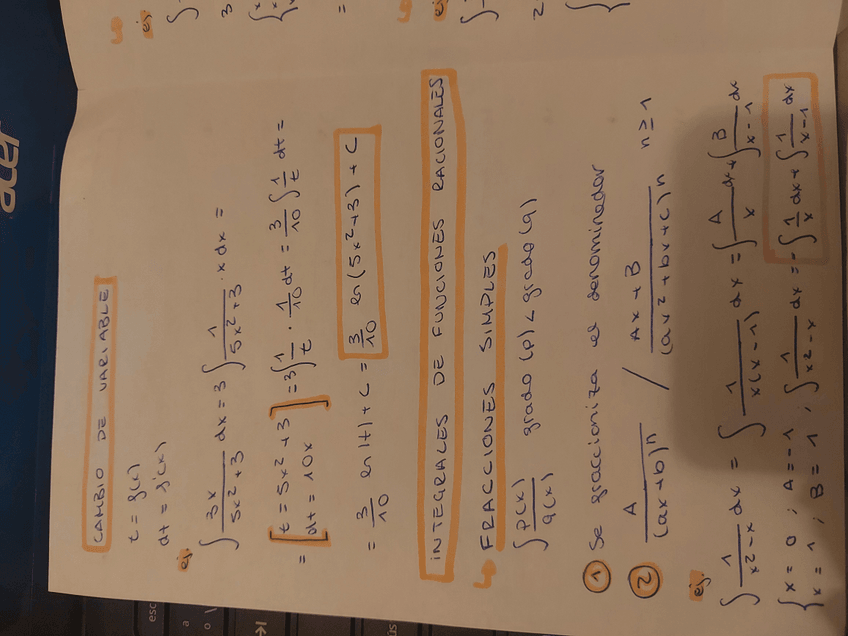 CAMBIO DE VARIABLE
t = g(x)
dt = g'(x)
ej.
∫ 3x/(5x²+3) dx = 3 ∫ 1/(5x²+3) · x dx =
= [t = 5x²+3
dt = 10x] = 3 ∫ 1/t · 1/10 dt = 3/10 ∫ 1/t dt =
= 3/10 ln|t| + C = 3/10 ln(5x²+3) + C
INTEGRALES DE FUNCIONES RACIONALES
↳ FRACCIONES SIMPLES
∫ P(x)/q(x) grado (p) < grado (q)
① Se fraccioniza el denominador
② A/(ax+b)ⁿ / Ax+B/(ax²+bx+c)ⁿ n≥1
ej.
∫ 1/(x²-x) dx = ∫ 1/(x(x-1)) dx = ∫ A/x dx + ∫ B/(x-1) dx
{x = 0 ; A = -1
x = 1 ; B = 1 ; ∫ 1/(x²-x) dx = -∫ 1/x dx + ∫ 1/(x-1) dx
acer
esc